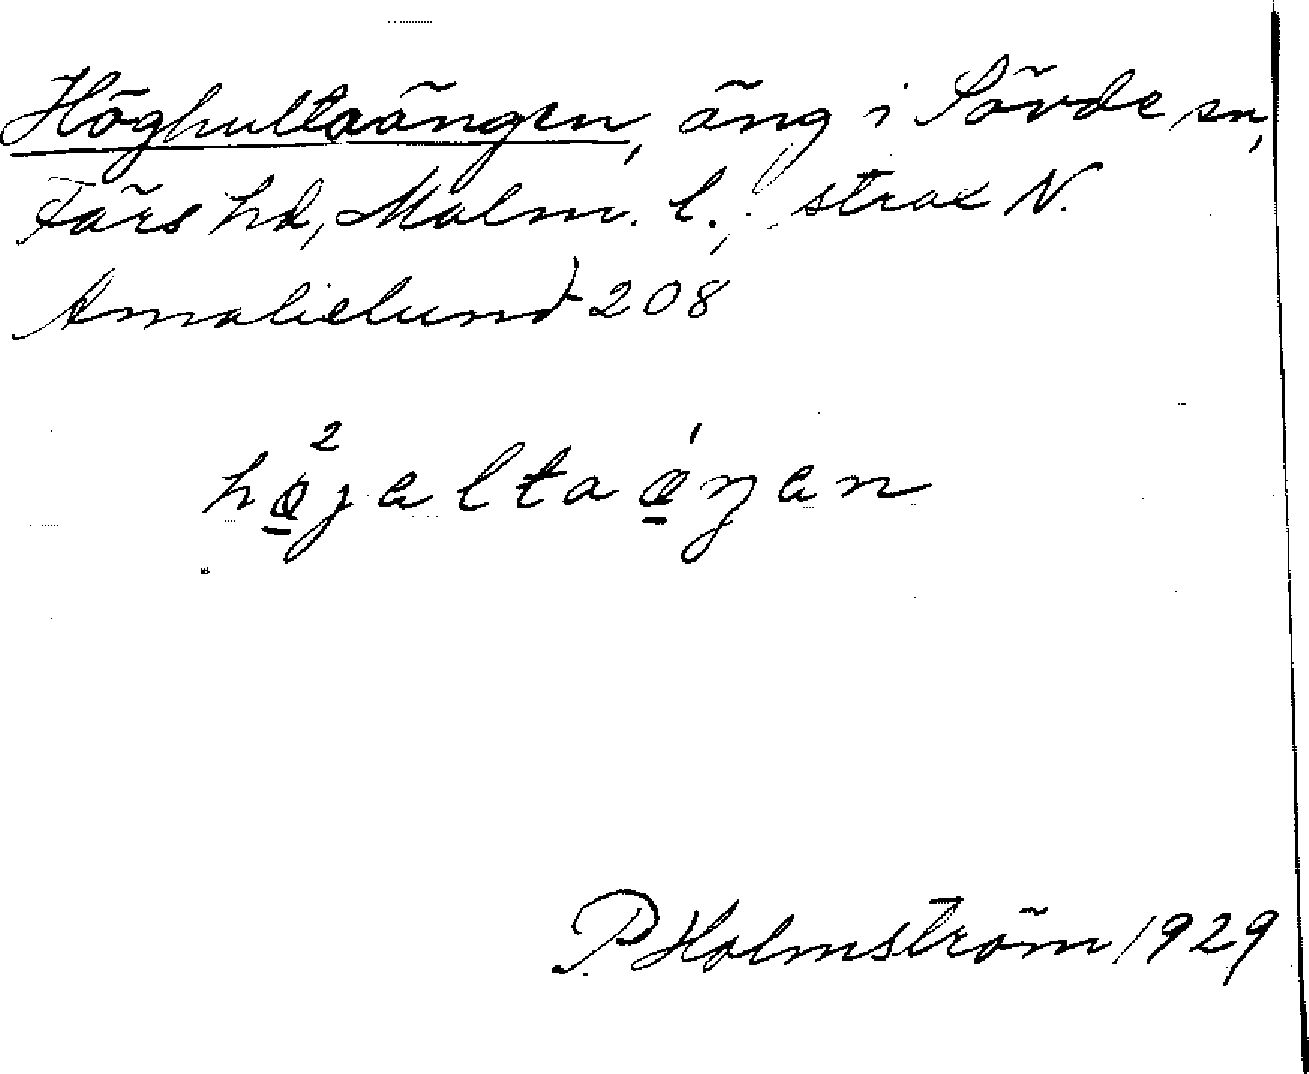 Höghultaängen, äng i Sövde sn,
Färs hd, Malm. l., strax N.
Amalielund 208
hø̱²jaltaǽ̱ŋan
P. Holmström 1929